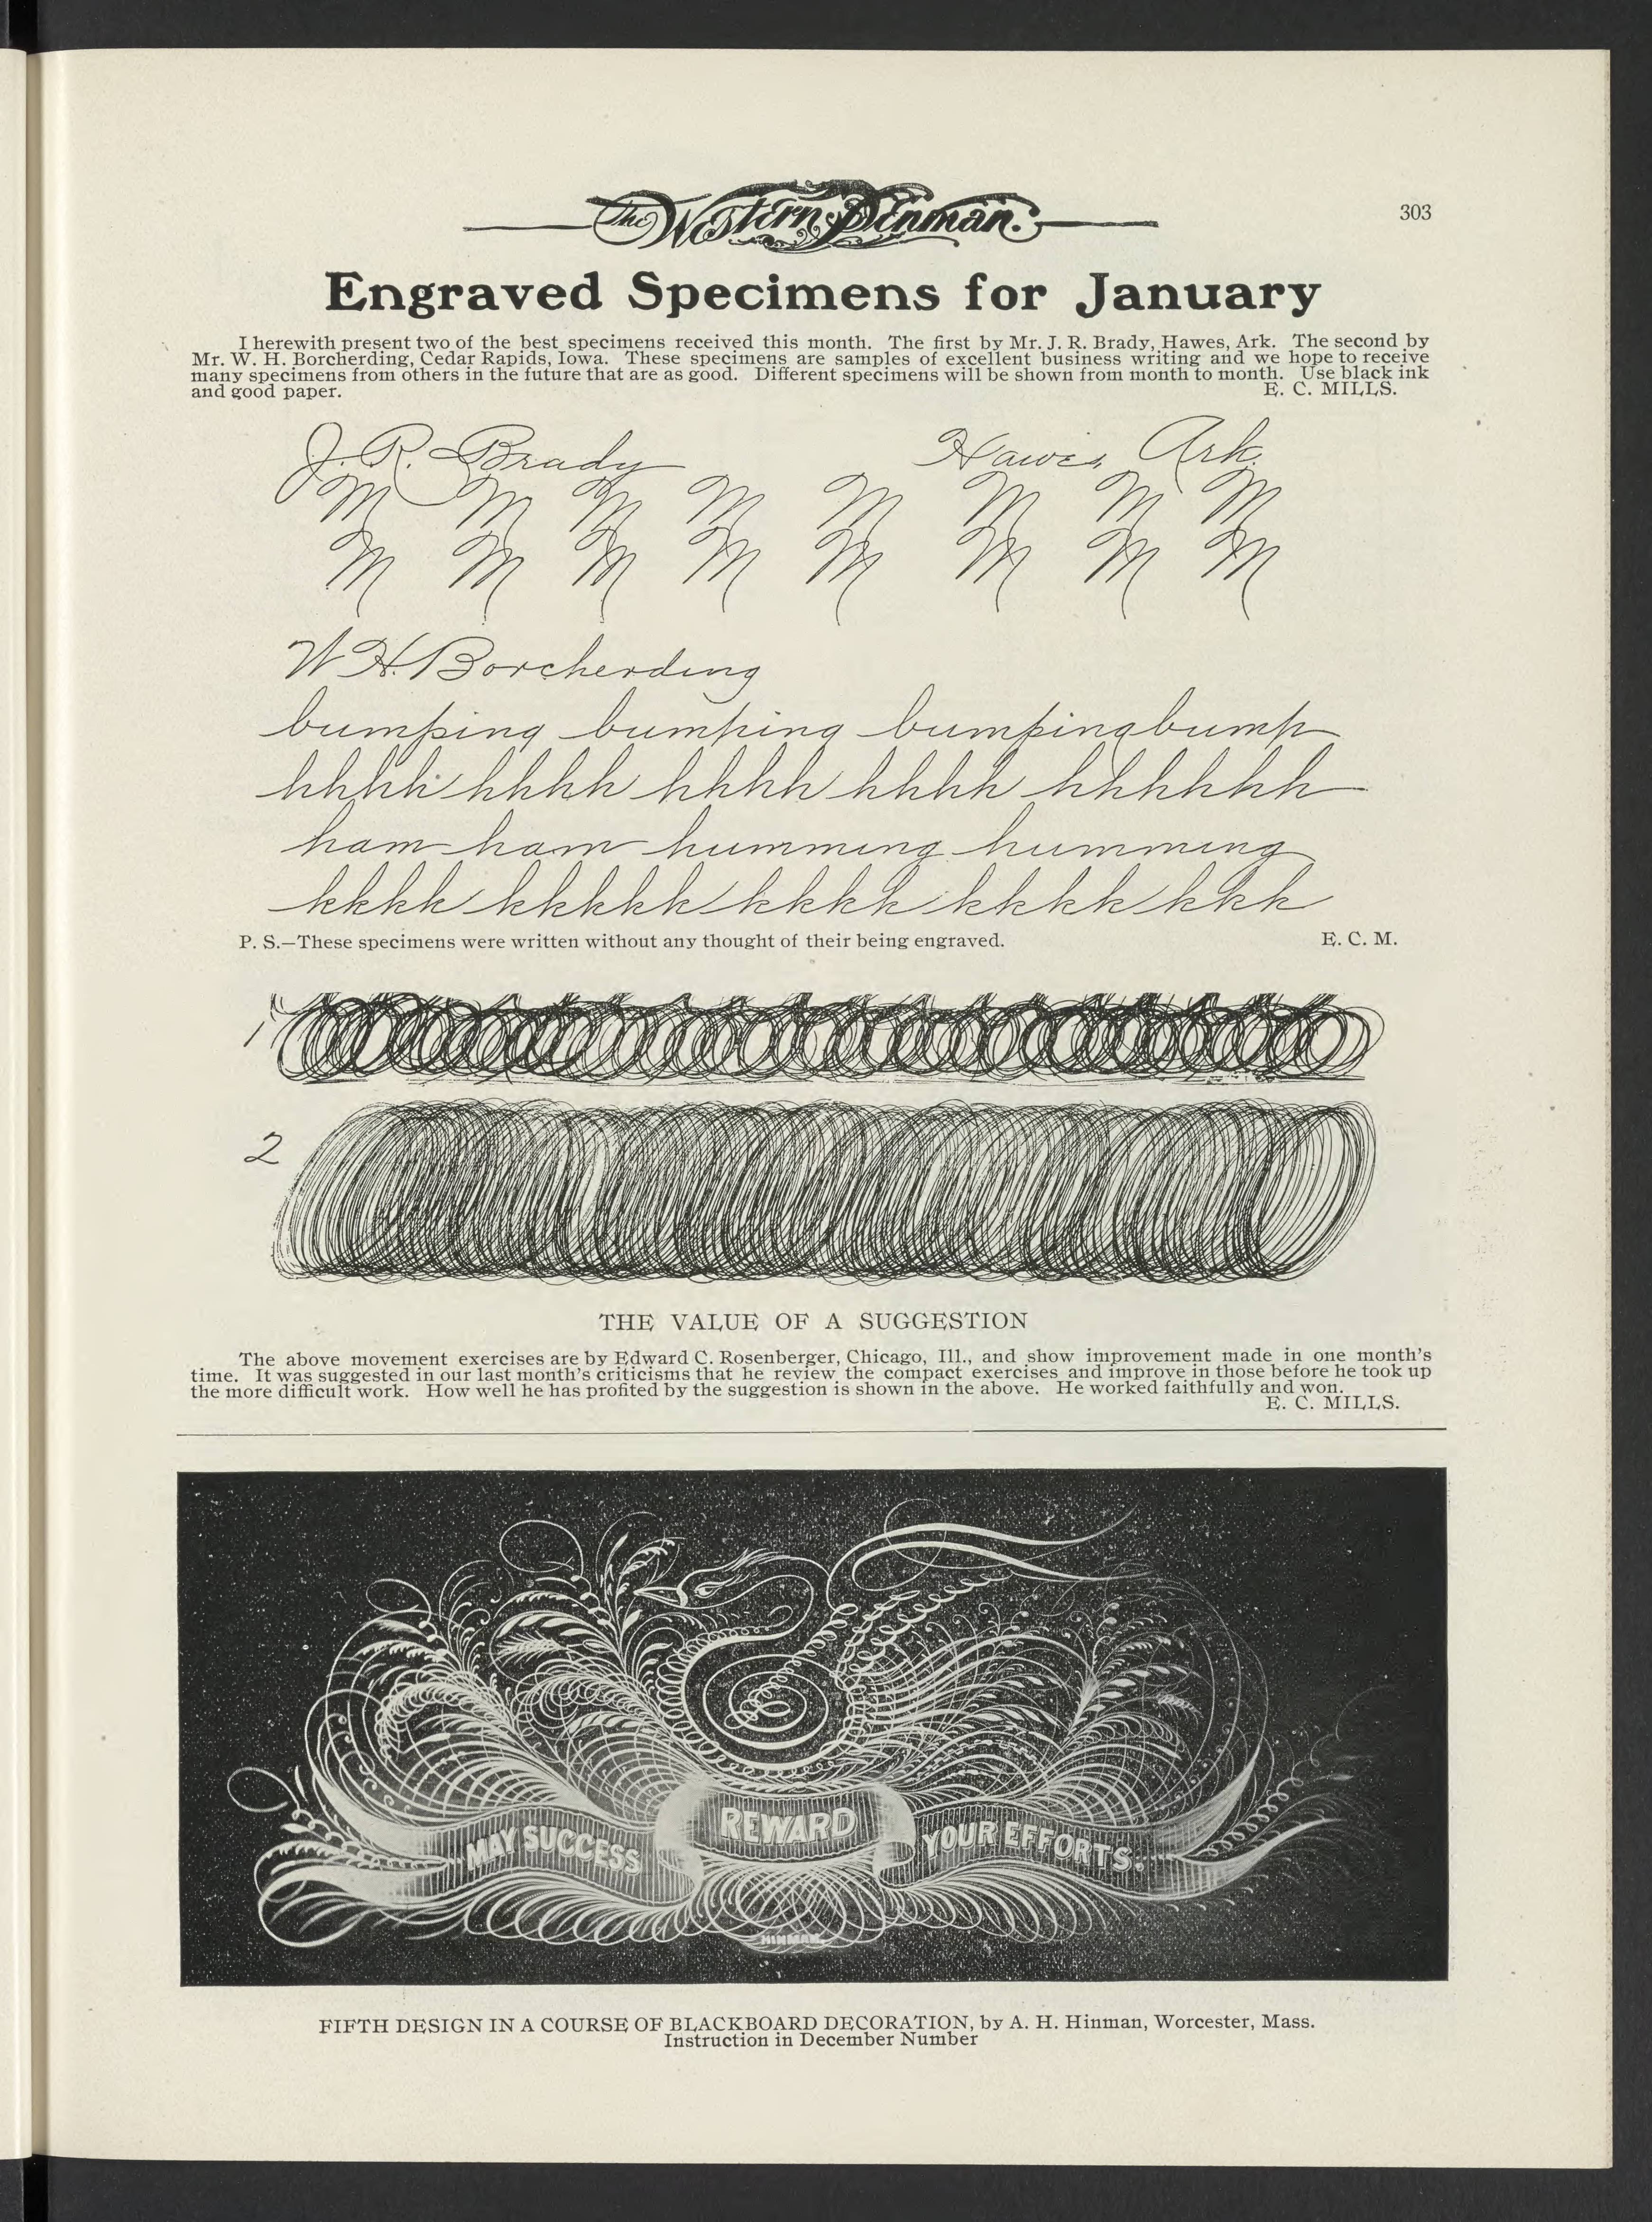 The Western Penman.
303
Engraved Specimens for January
I herewith present two of the best specimens received this month. The first by Mr. J. R. Brady, Hawes, Ark. The second by
Mr. W. H. Borcherding, Cedar Rapids, Iowa. These specimens are samples of excellent business writing and we hope to receive
many specimens from others in the future that are as good. Different specimens will be shown from month to month. Use black ink
and good paper. E. C. MILLS.
J. R. Brady Hawes, Ark.
M M M M M M M M
M M M M M M M M
W. H. Borcherding
bumping bumping bumping bump
hhhh hhhh hhhh hhhh hhhhhh
ham ham humming humming
kkkk kkkkk kkkk kkkk kkk
P. S.—These specimens were written without any thought of their being engraved. E. C. M.
1
2
THE VALUE OF A SUGGESTION
The above movement exercises are by Edward C. Rosenberger, Chicago, Ill., and show improvement made in one month's
time. It was suggested in our last month's criticisms that he review the compact exercises and improve in those before he took up
the more difficult work. How well he has profited by the suggestion is shown in the above. He worked faithfully and won.
E. C. MILLS.
MAY SUCCESS REWARD YOUR EFFORTS.
HINMAN
FIFTH DESIGN IN A COURSE OF BLACKBOARD DECORATION, by A. H. Hinman, Worcester, Mass.
Instruction in December Number